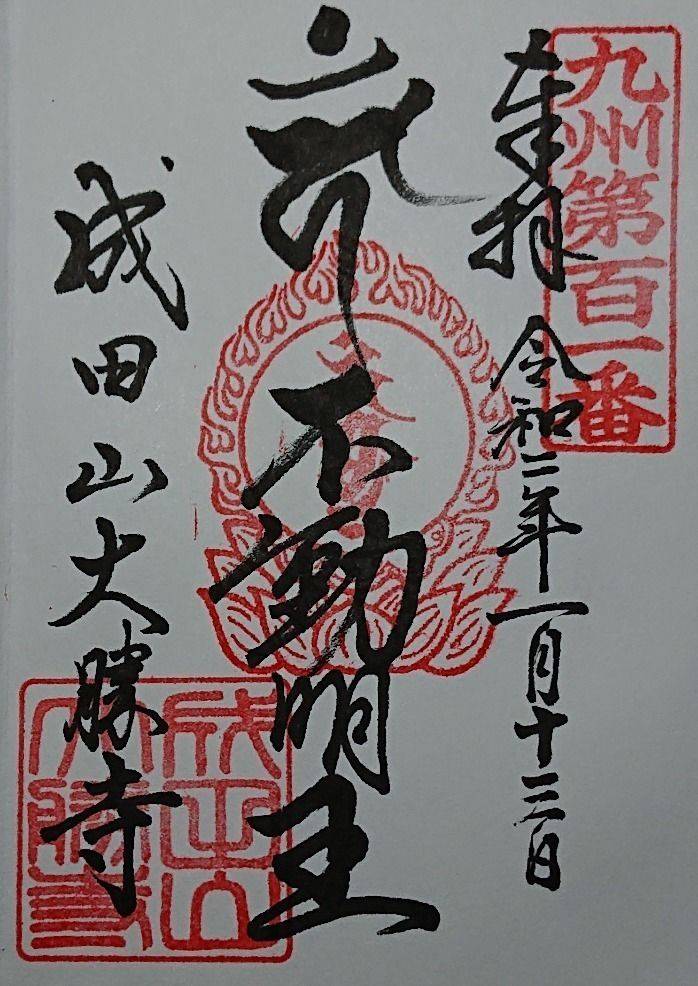 九州第百一番
奉拝
令和二年一月十三日
不動明王
成田山大勝寺
成田山
大勝寺